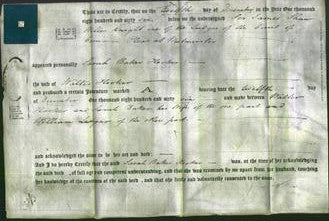 These are to Certify, that on the Twelfth day of December in the Year One thousand
eight hundred and sixty six before me the undersigned Sir James
Knight one of the Judges of the Court of
at Westminster
Appeared personally Sarah Baker Hooker
the wife of Walter Hooker
and produced a certain Indenture marked A bearing date the Twelfth day
of December One thousand eight hundred and sixty six and made between Walter
Hooker and Sarah Baker his wife of the one part and
William of the other part
and acknowledged the same to be her act and deed
And I do hereby Certify that the said Sarah Baker Hooker was, at the time of her acknowledging
the said deed, of full age and competent understanding, and that she was examined by me apart from her husband, touching
her knowledge of the contents of the said deed, and that she freely and voluntarily consented to the same.